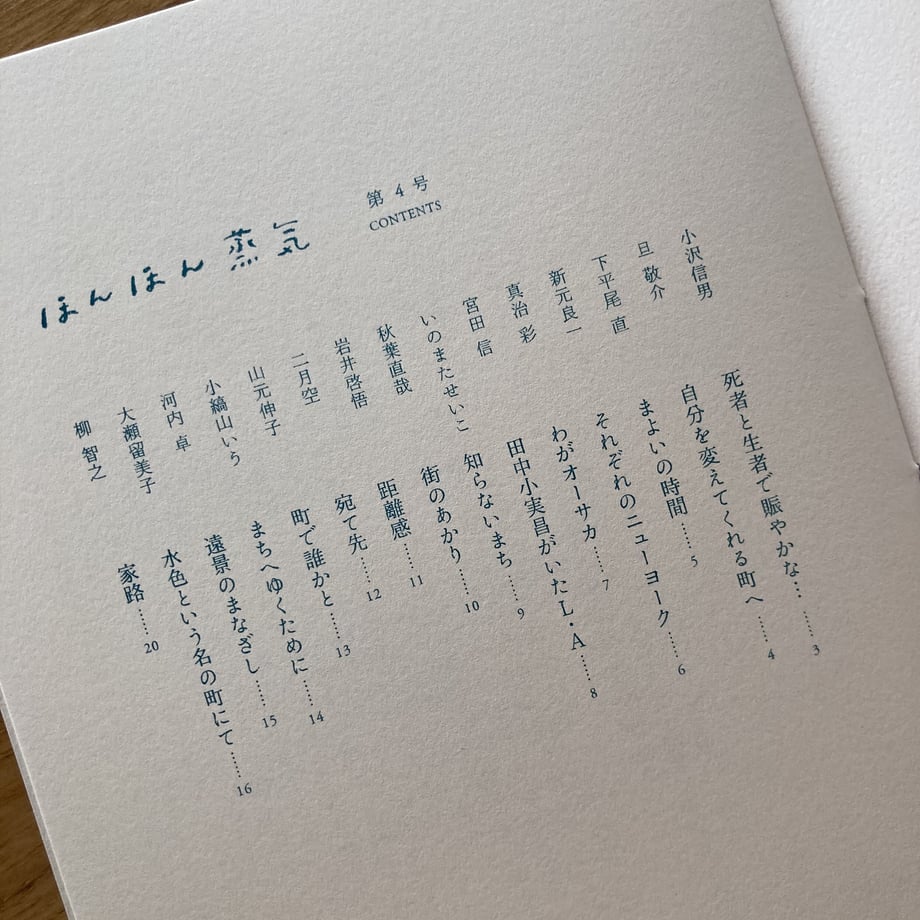 ほんほん蒸気
第4号
CONTENTS
小沢信男 死者と生者で賑やかな… …… 3
旦 敬介 自分を変えてくれる町へ …… 4
下平尾 直 まよいの時間 …… 5
新元良一 それぞれのニューヨーク …… 6
真治 彩 わがオーサカ …… 7
宮田 信 田中小実昌がいたL・A …… 8
いのまたせいこ 知らないまち …… 9
秋葉直哉 街のあかり …… 10
岩井啓悟 距離感 …… 11
二月空 宛て先 …… 12
山元伸子 町で誰かと …… 13
小縞山いう まちへゆくために …… 14
河内 卓 遠景のまなざし …… 15
大瀬留美子 水色という名の町にて …… 16
柳 智之 家路 …… 20